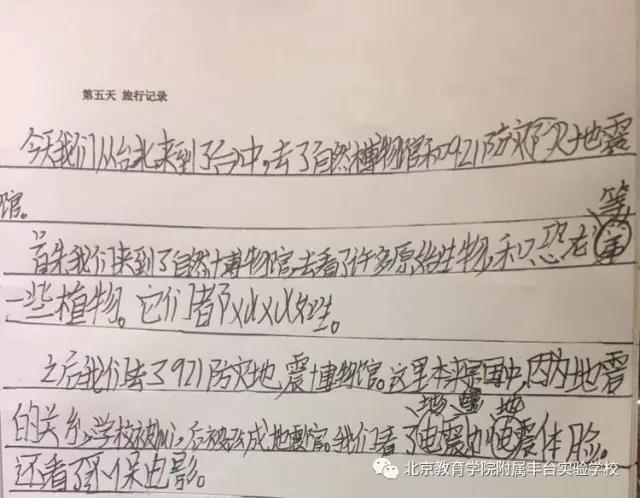 第五天 旅行记录
今天我们从台北来到了台中,去了自然博物馆和921防灾地震
馆。
等
首先我们来到了自然博物馆,去看了许多原始生物,和恐龙
一些植物。它们都XXXX如生。
之后我们去了921防灾地震博物馆。这里本来是国中,因为地震
的关系,学校被 后被改成地震馆。我们看了电震 电震体脸。
地震 地
还看了环保电影。
北京教育学院附属丰台实验学校